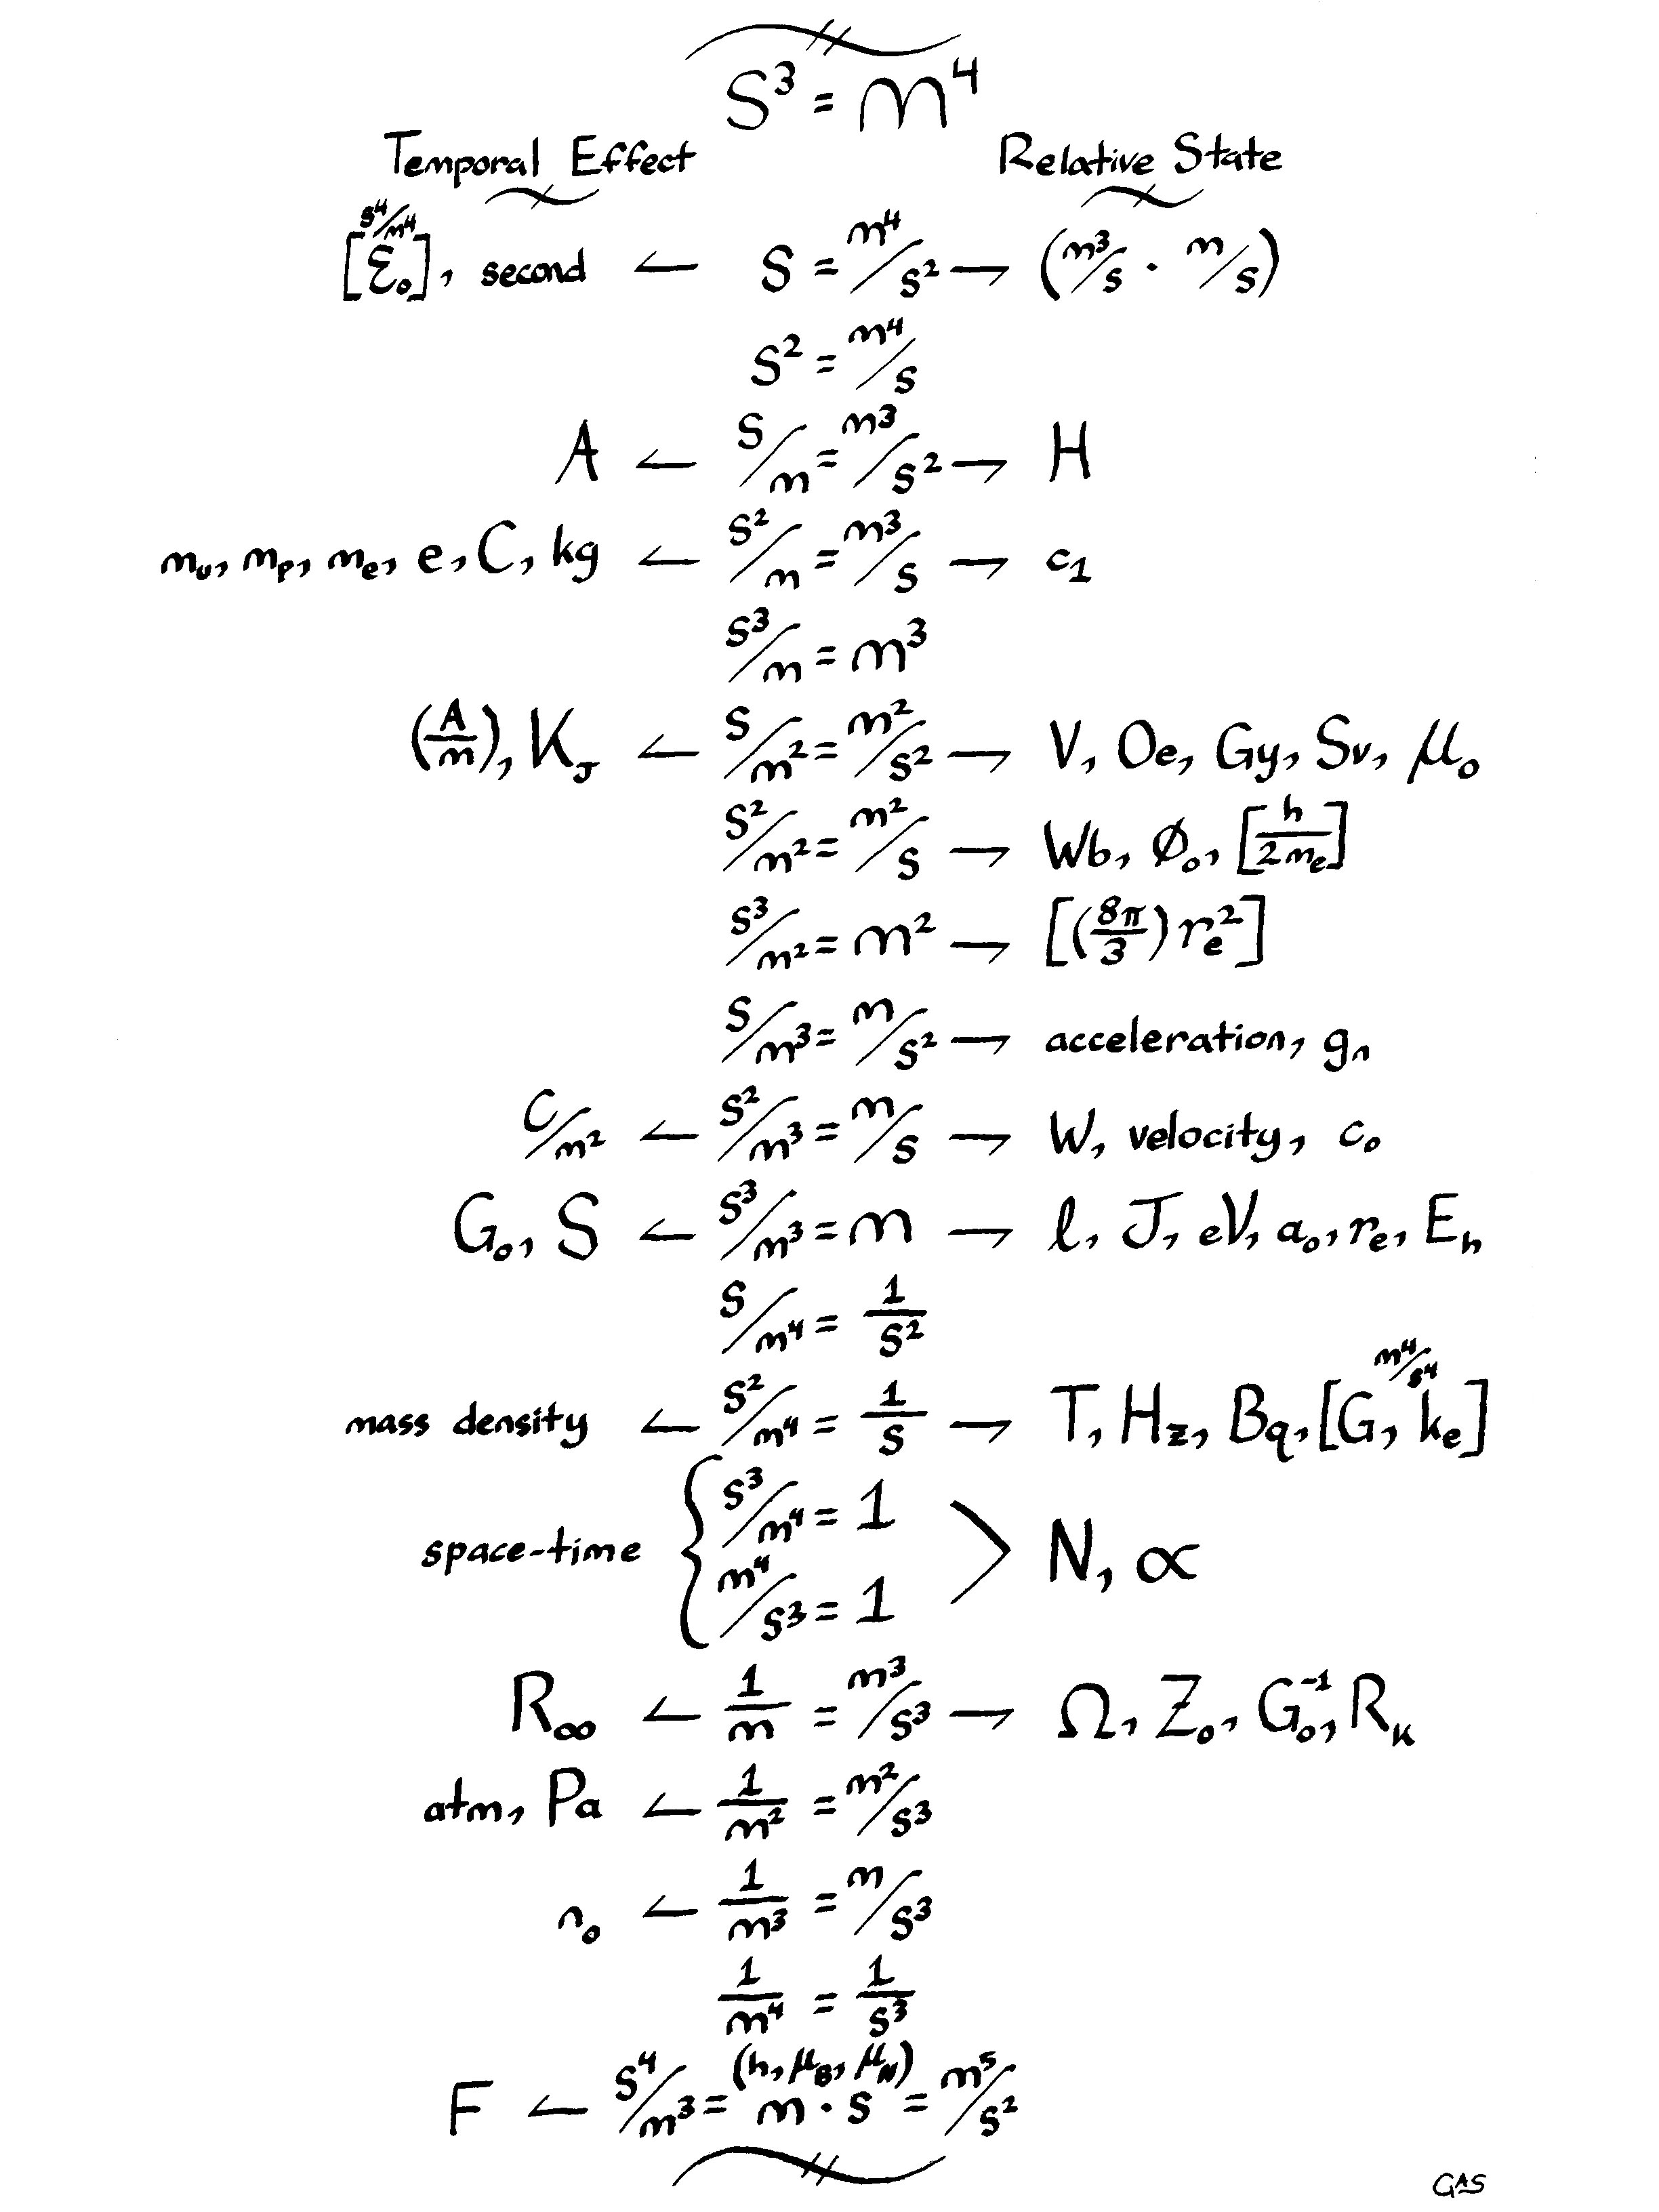 S³ = m⁴
Temporal Effect Relative State
[ε₀] s⁴/m⁴, second ← s = m⁴/s² → (m³/s · m/s)
s² = m⁴/s
A ← s/m = m³/s² → H
mᵤ, mₚ, mₑ, e, C, kg ← s²/m = m³/s → c₁
s³/m = m³
(A/m), K_J ← s/m² = m²/s² → V, Oe, Gy, Sv, μ₀
s²/m² = m²/s → Wb, Ø₀, [h/2mₑ]
s³/m² = m² → [(8π/3) rₑ²]
s/m³ = m/s² → acceleration, gₙ
C/m² ← s²/m³ = m/s → W, velocity, c₀
G₀, S ← s³/m³ = m → ℓ, J, eV, a₀, rₑ, Eₕ
s/m⁴ = 1/s²
mass density ← s²/m⁴ = 1/s → T, Hz, Bq, [G, kₑ] m⁴/s⁴
s³/m⁴ = 1
space-time { > N, ∝
m⁴/s³ = 1
R∞ ← 1/m = m³/s³ → Ω, Z₀, G₀⁻¹, R_K
atm, Pa ← 1/m² = m²/s³
n₀ ← 1/m³ = m/s³
1/m⁴ = 1/s³
(h, μ_B, μ_N)
F ← s⁴/m³ = m · s = m⁵/s²
GAS